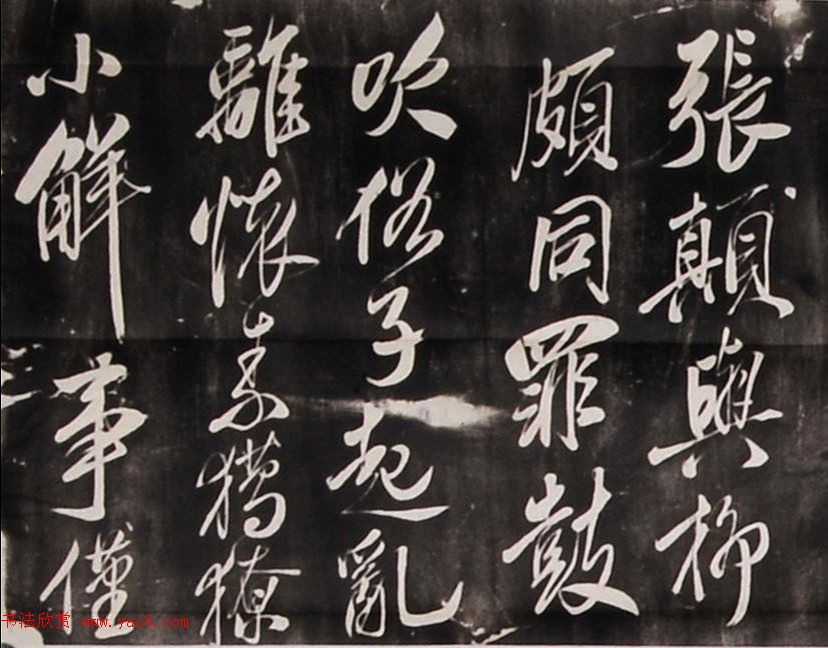 張顛與柳
頗同罪鼓
吹俗子起亂
離懷素獦獠
小解事僅
书法欣赏 www.yac8.com